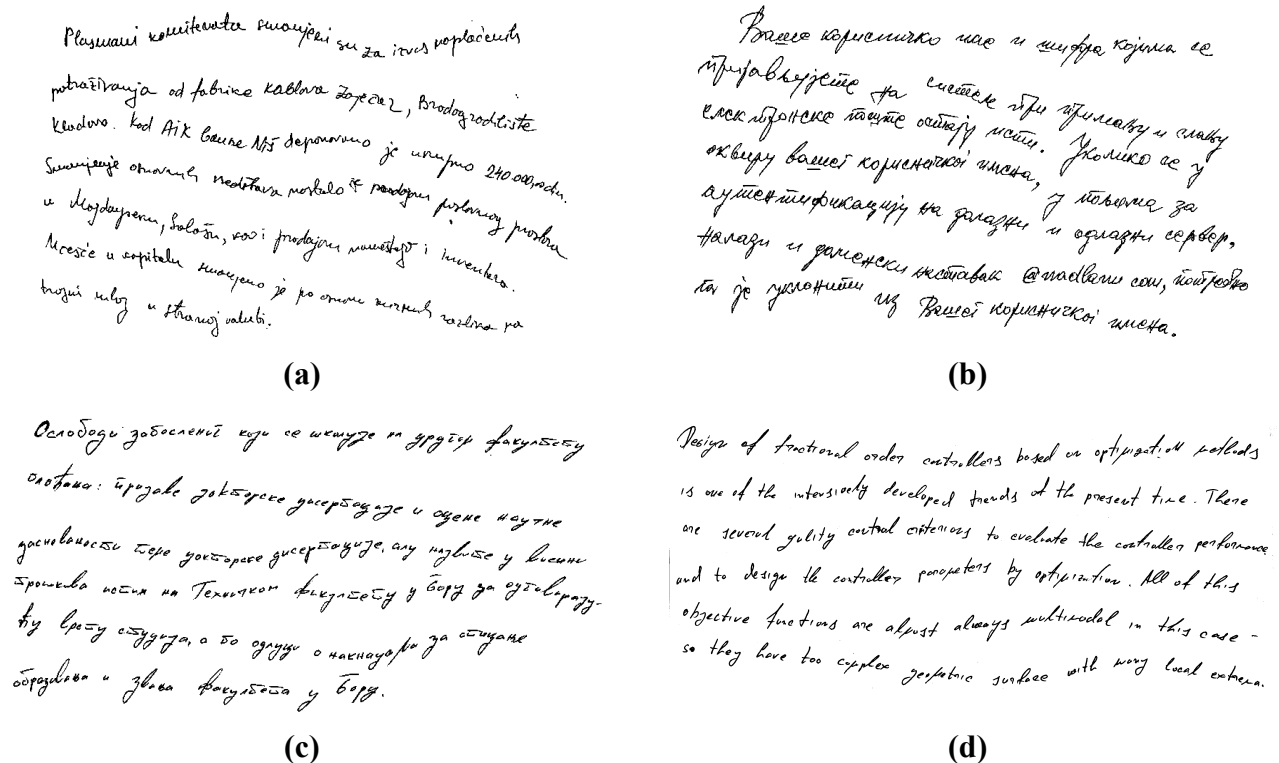 Plasmani komitenata smanjeni su za iznos naplaćenih
potraživanja od fabrike kablova Zaječar, Brodogradilište
Kladovo. Kod AIK banke Niš deponovano je ukupno 240 000,
Smanjenje osnovnih sredstava nastalo je prodajom poslovnog prostora
u Majdanpeku, Salašu, kao i prodajom nameštaja i inventara.
Učešće u kapitalu smanjeno je po osnovu kursnih razlika na
trajni ulog u stranoj valuti.
(a)
Ваше корисничко име и шифра којима се
пријављујете на системе при примању и слању
електронске поште остају исти. Уколико се у
оквиру вашег корисничког имена, у пољима за
аутентификацију на долазни и одлазни сервер,
налази и доменски наставак @madlanu com, потребно
га је уклонити из Вашег корисничког имена.
(b)
Ослободи запослени који се школује на другом факултету
плаћања: пријаве докторске дисертације и оцене научне
заснованости теме докторске дисертације, али највише у висини
трошкова истих на Техничком факултету у Бору за одговарају-
ћу врсту студија, а по одлуци о накнадама за стицање
образовања и звања факултета у Бору.
(c)
Design of fractional order controllers based on optimization methods
is one of the intensively developed trends of the present time. There
are several quality control criterions to evaluate the controller performance
and to design the controller parameters by optimization. All of this
objective functions are almost always multimodal in this case -
so they have too complex geometric surface with many local extrema.
(d)